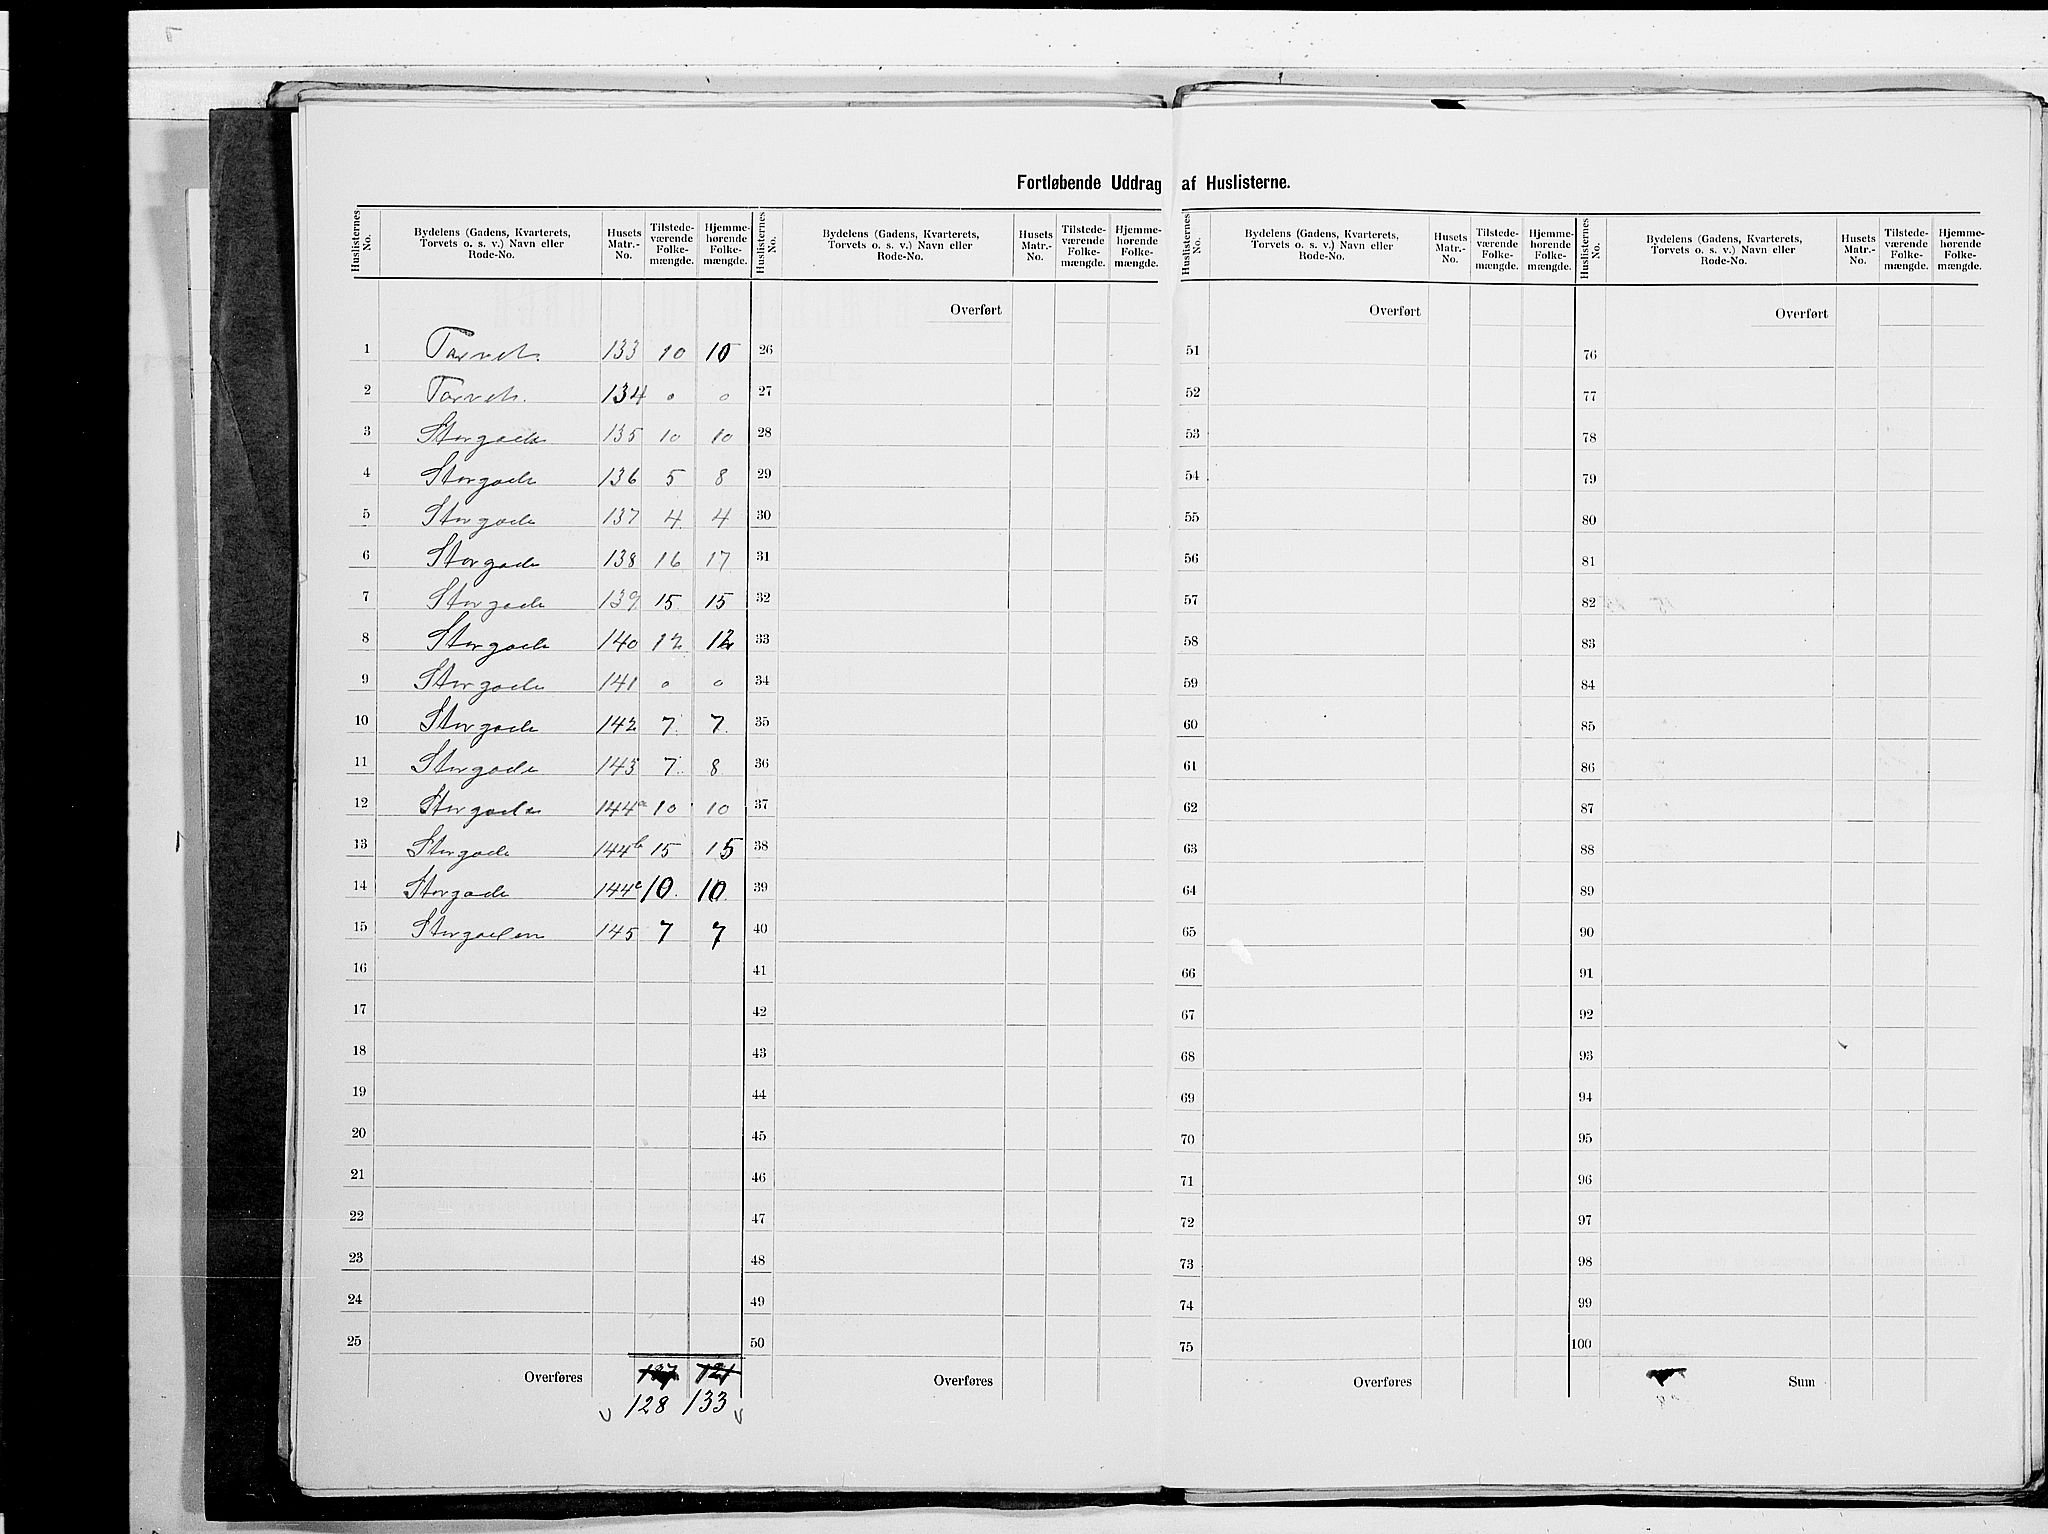 Fortløbende Uddrag af Huslisterne.
Huslisternes No. | Bydelens (Gadens, Kvarterets, Torvets o. s. v.) Navn eller Rode-No. | Husets Matr.-No. | Tilstede-værende Folke-mængde. | Hjemme-hørende Folke-mængde.
Huslisternes No. | Bydelens (Gadens, Kvarterets, Torvets o. s. v.) Navn eller Rode-No. | Husets Matr.-No. | Tilstede-værende Folke-mængde. | Hjemme-hørende Folke-mængde.
Huslisternes No. | Bydelens (Gadens, Kvarterets, Torvets o. s. v.) Navn eller Rode-No. | Husets Matr.-No. | Tilstede-værende Folke-mængde. | Hjemme-hørende Folke-mængde.
Huslisternes No. | Bydelens (Gadens, Kvarterets, Torvets o. s. v.) Navn eller Rode-No. | Husets Matr.-No. | Tilstede-værende Folke-mængde. | Hjemme-hørende Folke-mængde.
Overført Overført Overført
1 Torvet. 133 10 10 26 51 76
2 Torvet. 134 0 0 27 52 77
3 Storgade 135 10 10 28 53 78
4 Storgade 136 5 8 29 54 79
5 Storgade 137 4 4 30 55 80
6 Storgade 138 16 17 31 56 81
7 Storgade 139 15 15 32 57 82
8 Storgade 140 12 12 33 58 83
9 Storgade 141 0 0 34 59 84
10 Storgade 142 7 7 35 60 85
11 Storgade 143 7 8 36 61 86
12 Storgade 144a 10 10 37 62 87
13 Storgade 144b 15 15 38 63 88
14 Storgade 144c 10 10 39 64 89
15 Storgaden 145 7 7 40 65 90
16 41 66 91
17 42 67 92
18 43 68 93
19 44 69 94
20 45 70 95
21 46 71 96
22 47 72 97
23 48 73 98
24 49 74 99
25 50 75 100
Overføres 121 Overføres Overføres Sum
128 133